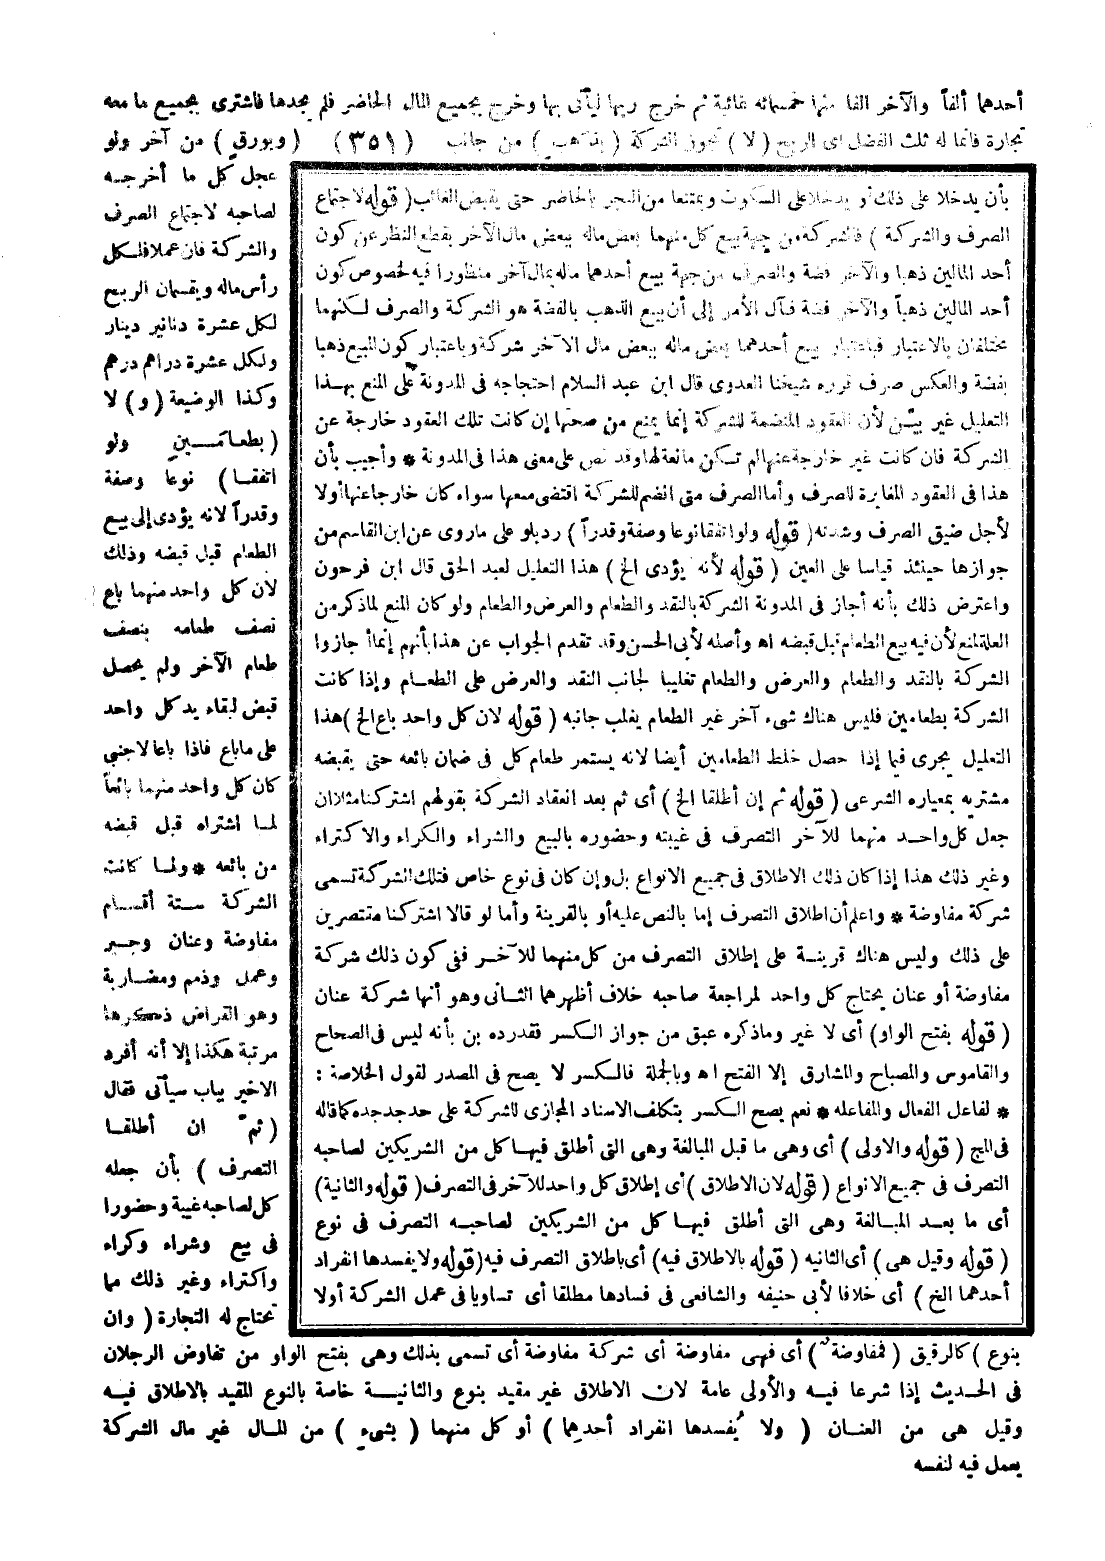 أحدهما ألفاً والآخر الفا منها خمسمائه غائبة ثم خرج ربها ليأتى بها وخرج بجميع المال الحاضر فلم يجدها فاشترى بجميع ما معه
تجارة فانما له ثلث الفضل اى الربح ( لا ) تجوز الشركة ( بذهب ) من جانب ( ٣٥١ ) ( وبورق ) من آخر ولو
عجل كل ما أخرجه
لصاحبه لاجتماع الصرف
والشركة فان عملا فلكل
رأس ماله ويقسمان الربح
لكل عشرة دنانير دينار
ولكل عشرة دراهم درهم
وكذا الوضيعة ( و ) لا
( بطعامين ولو
اتفقا ) نوعا وصفة
وقدراً لانه يؤدى إلى بيع
الطعام قبل قبضه وذلك
لان كل واحد منهما باع
نصف طعامه بنصف
طعام الآخر ولم يحصل
قبض لبقاء يد كل واحد
على ماباع فاذا باعا لاجنبي
كان كل واحد منهما بائعاً
لما اشتراه قبل قبضه
من بائعه * ولما كانت
الشركة ستة أقسام
مفاوضة وعنان وجبر
وعمل وذمم ومضاربة
وهو القراض ذكرها
مرتبة هكذا إلا أنه أفرد
الاخير بباب سيأتى فقال
( ثم ان أطلقا
التصرف ) بأن جعله
كل لصاحبه غيبة وحضورا
فى بيع وشراء وكراء
واكتراء وغير ذلك مما
تحتاج له التجارة ( وان
بأن يدخلا على ذلك أو يدخلا على السكوت ويمتنعا من التجر بالحاضر حتى يقبض الغائب ( قوله لاجتماع
الصرف والشركة ) فالشركة من جهة بيع كل منهما بعض ماله ببعض مال الآخر بقطع النظر عن كون
أحد المالين ذهبا والآخر فضة والصرف من جهة بيع أحدهما ماله بمال آخر منظورا فيه لخصوص كون
أحد المالين ذهباً والآخر فضة فآل الأمر إلى أن بيع الذهب بالفضة هو الشركة والصرف لكنهما
مختلفان بالاعتبار فباعتبار بيع أحدهما بعض ماله ببعض مال الآخر شركة وباعتبار كون المبيع ذهبا
بفضة والعكس صرف قرره شيخنا العدوى قال ابن عبد السلام احتجاجه فى المدونة على المنع بهذا
التعليل غير بيّن لأن العقود المنضمة للشركة إنما يمنع من صحتها إن كانت تلك العقود خارجة عن
الشركة فان كانت غير خارجة عنها لم تكن مانعة لها وقد نص على معنى هذا فى المدونة * وأجيب بأن
هذا فى العقود المغايرة للصرف وأما الصرف متى انضم للشركة اقتضى منعها سواء كان خارجا عنها أولا
لأجل ضيق الصرف وشدته ( قوله ولو اتفقا نوعا وصفة وقدراً ) رد بلو على ماروى عن ابن القاسم من
جوازها حينئذ قياسا على العين ( قوله لأنه يؤدى الخ ) هذا التعليل لعبد الحق قال ابن فرحون
واعترض ذلك بأنه أجاز فى المدونة الشركة بالنقد والطعام والعرض والطعام ولو كان المنع لماذكر من
العلة لمنع لأن فيه بيع الطعام قبل قبضه اه وأصله لأبى الحسن وقد تقدم الجواب عن هذا بأنهم إنما أجازوا
الشركة بالنقد والطعام والعرض والطعام تغليبا لجانب النقد والعرض على الطعام وإذا كانت
الشركة بطعامين فليس هناك شىء آخر غير الطعام يغلب جانبه ( قوله لان كل واحد باع الخ ) هذا
التعليل يجرى فيما إذا حصل خلط الطعامين أيضا لانه يستمر طعام كل فى ضمان بائعه حتى يقبضه
مشتريه بمعياره الشرعى ( قوله ثم إن أطلقا الخ ) أى ثم بعد انعقاد الشركة بقولهم اشتركنا مثلا ان
جعل كل واحد منهما للآخر التصرف فى غيبته وحضوره بالبيع والشراء والكراء والاكتراء
وغير ذلك هذا إذا كان ذلك الاطلاق فى جميع الانواع بل وإن كان فى نوع خاص فتلك الشركة تسمى
شركة مفاوضة * واعلم أن اطلاق التصرف إما بالنص عليه أو بالقرينة وأما لو قالا اشتركنا مقتصرين
على ذلك وليس هناك قرينة على إطلاق التصرف من كل منهما للآخر ففى كون ذلك شركة
مفاوضة أو عنان يحتاج كل واحد لمراجعة صاحبه خلاف أظهرهما الثانى وهو أنها شركة عنان
( قوله بفتح الواو ) أى لا غير وماذكره عبق من جواز الكسر فقد رده بن بأنه ليس فى الصحاح
والقاموس والمصباح والمشارق إلا الفتح اه وبالجملة فالكسر لا يصح فى المصدر لقول الخلاصة :
* لفاعل الفعال والمفاعله * نعم يصح الكسر بتكلف الاسناد المجازى للشركة على حد جد جده كما قاله
فى المج ( قوله والاولى ) أى وهى ما قبل المبالغة وهى التى أطلق فيها كل من الشريكين لصاحبه
التصرف فى جميع الانواع ( قوله لان الاطلاق ) أى إطلاق كل واحد للآخر فى التصرف ( قوله والثانية )
أى ما بعد المبالغة وهى التى أطلق فيها كل من الشريكين لصاحبه التصرف فى نوع
( قوله وقيل هى ) أى الثانيه ( قوله بالاطلاق فيه ) أى باطلاق التصرف فيه ( قوله ولا يفسدها انفراد
أحدهما الخ ) أى خلافا لأبى حنيفه والشافعى فى فسادها مطلقا أى تساويا فى عمل الشركة أولا
بنوع ) كالرقيق ( فمفاوضة ) أى فهى مفاوضة أى شركة مفاوضة أى تسمى بذلك وهى بفتح الواو من تفاوض الرجلان
فى الحديث إذا شرعا فيه والأولى عامة لان الاطلاق غير مقيد بنوع والثانية خاصة بالنوع المقيد بالاطلاق فيه
وقيل هى من العنان ( ولا يُفسدها انفراد أحدهما ) أو كل منهما ( بشىء ) من المال غير مال الشركة
يعمل فيه لنفسه